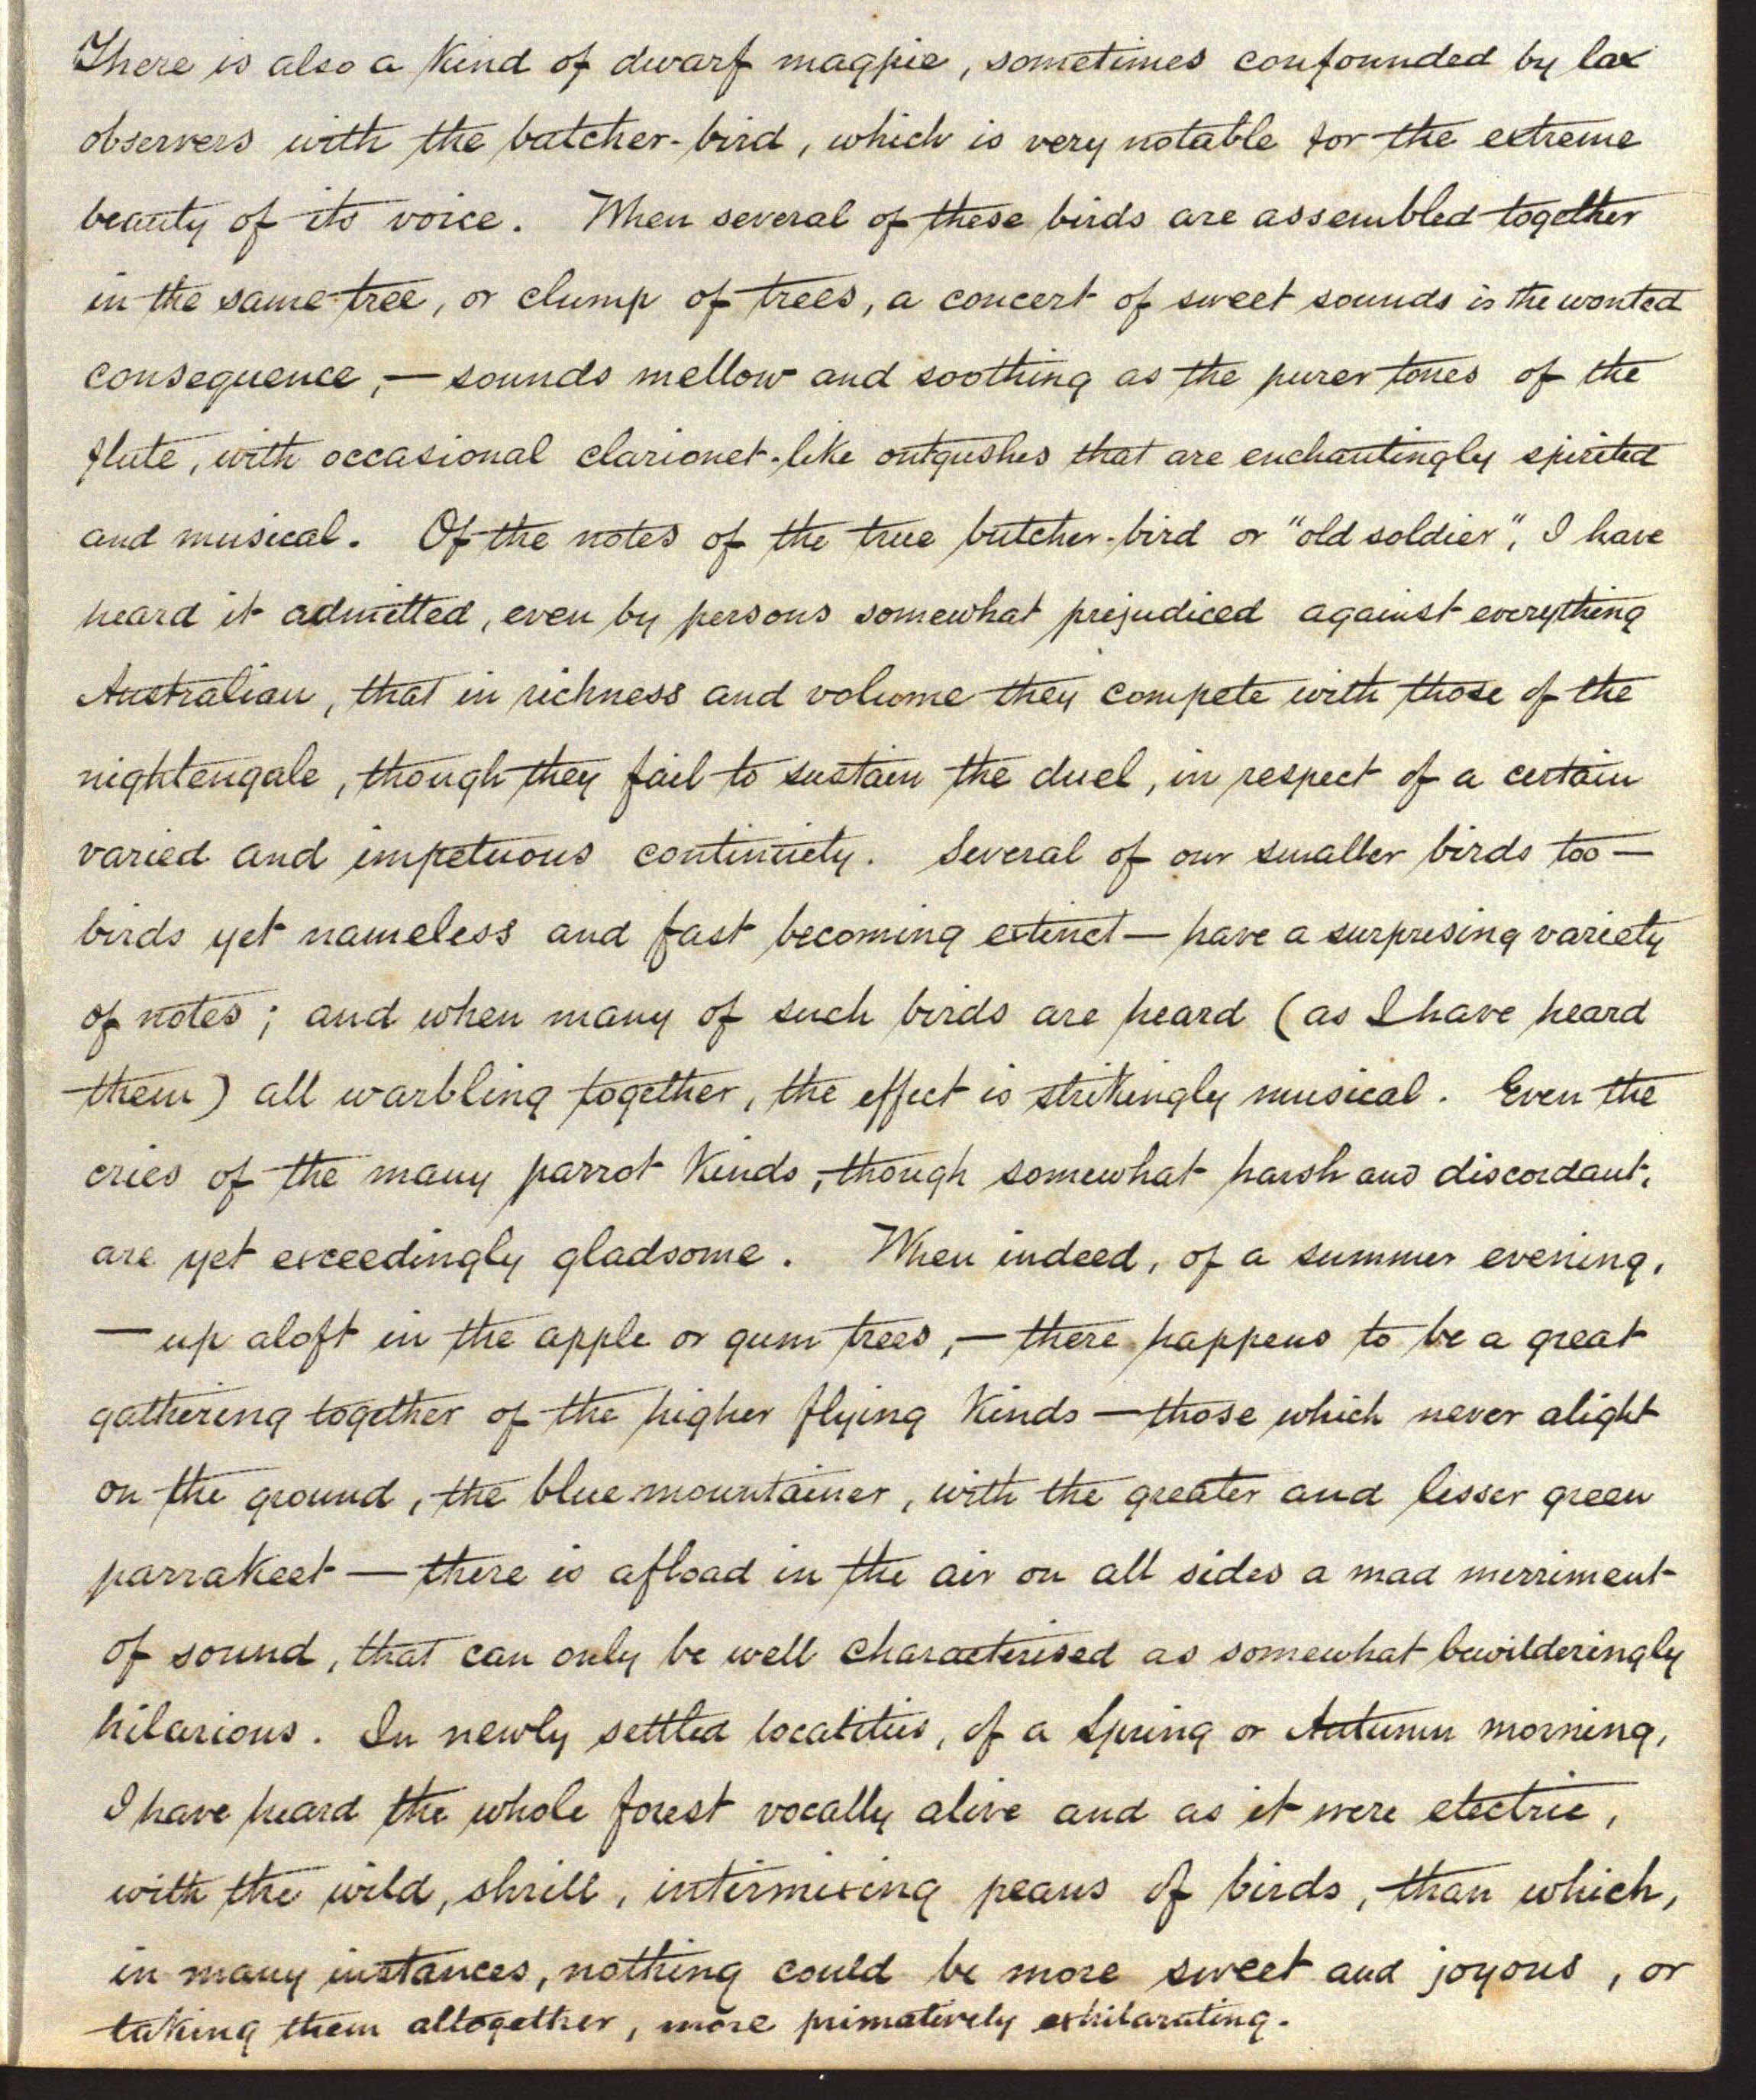 There is also a kind of dwarf magpie, sometimes confounded by lax
observers with the butcher-bird, which is very notable for the extreme
beauty of its voice. When several of these birds are assembled together
in the same tree, or clump of trees, a concert of sweet sounds is the wonted
consequence, — sounds mellow and soothing as the purer tones of the
flute, with occasional clarionet-like outgushes that are enchantingly spirited
and musical. Of the notes of the true butcher-bird or "old soldier", I have
heard it admitted, even by persons somewhat prejudiced against everything
Australian, that in richness and volume they compete with those of the
nightengale, though they fail to sustain the duel, in respect of a certain
varied and impetuous continuety. Several of our smaller birds too —
birds yet nameless and fast becoming extinct — have a surprising variety
of notes; and when many of such birds are heard (as I have heard
them) all warbling together, the effect is strikingly musical. Even the
cries of the many parrot kinds, though somewhat harsh and discordant,
are yet exceedingly gladsome. When indeed, of a summer evening,
— up aloft in the apple or gum trees, — there happens to be a great
gathering together of the higher flying kinds — those which never alight
on the ground, the blue mountainer, with the greater and lesser green
parrakeet — there is afload in the air on all sides a mad merriment
of sound, that can only be well characterised as somewhat bewilderingly
hilarious. In newly settled localities, of a Spring or Autumn morning,
I have heard the whole forest vocally alive and as it were electric,
with the wild, shrill, intermixing peans of birds, than which,
in many instances, nothing could be more sweet and joyous, or
taking them altogether, more primatively exhilarating.